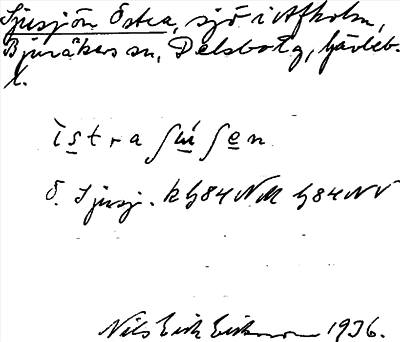 Sjusjön Östra, sjö i Afholm,
Bjuråkers sn, Delsbo tg, Gävleb.
l.
ìstra ʃu̇ʃen
Ö. Sjusj. k G84 NM G84 NV
Nils Erik Eriksson 1936.